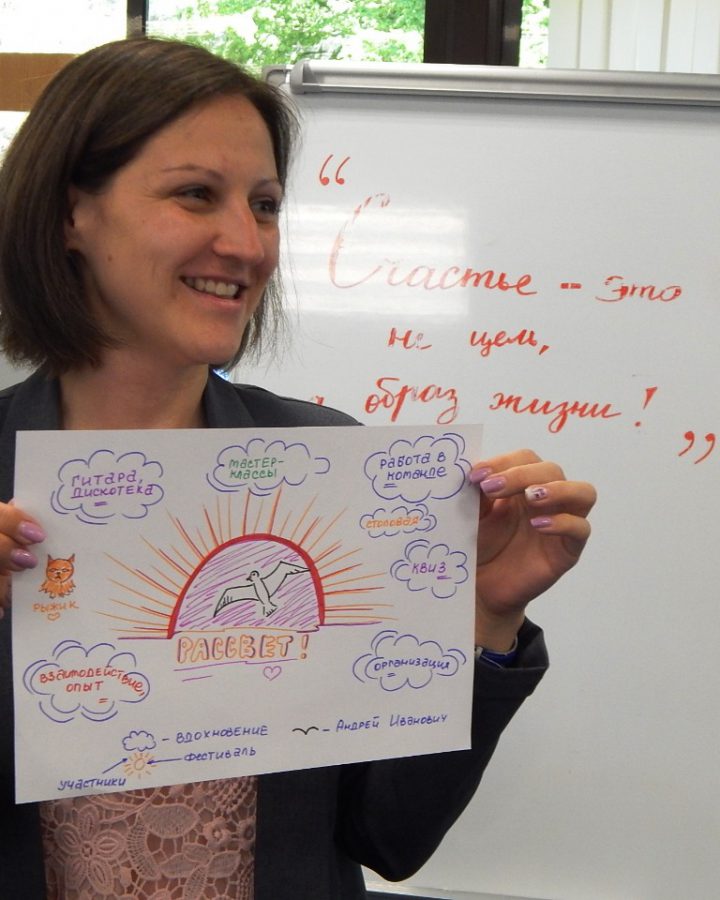 “
Счастье - это
не цель,
а образ жизни!
”
ГИТАРА,
ДИСКОТЕКА
МАСТЕР-
КЛАССЫ
РАБОТА В
КОМАНДЕ
СТОЛОВАЯ
КВИЗ
РЫЖИК
РАССВЕТ!
ВЗАИМОДЕЙСТВИЕ,
ОПЫТ
ОРГАНИЗАЦИЯ
- ВДОХНОВЕНИЕ
- АНДРЕЙ ИВАНОВИЧ
- ФЕСТИВАЛЬ
УЧАСТНИКИ